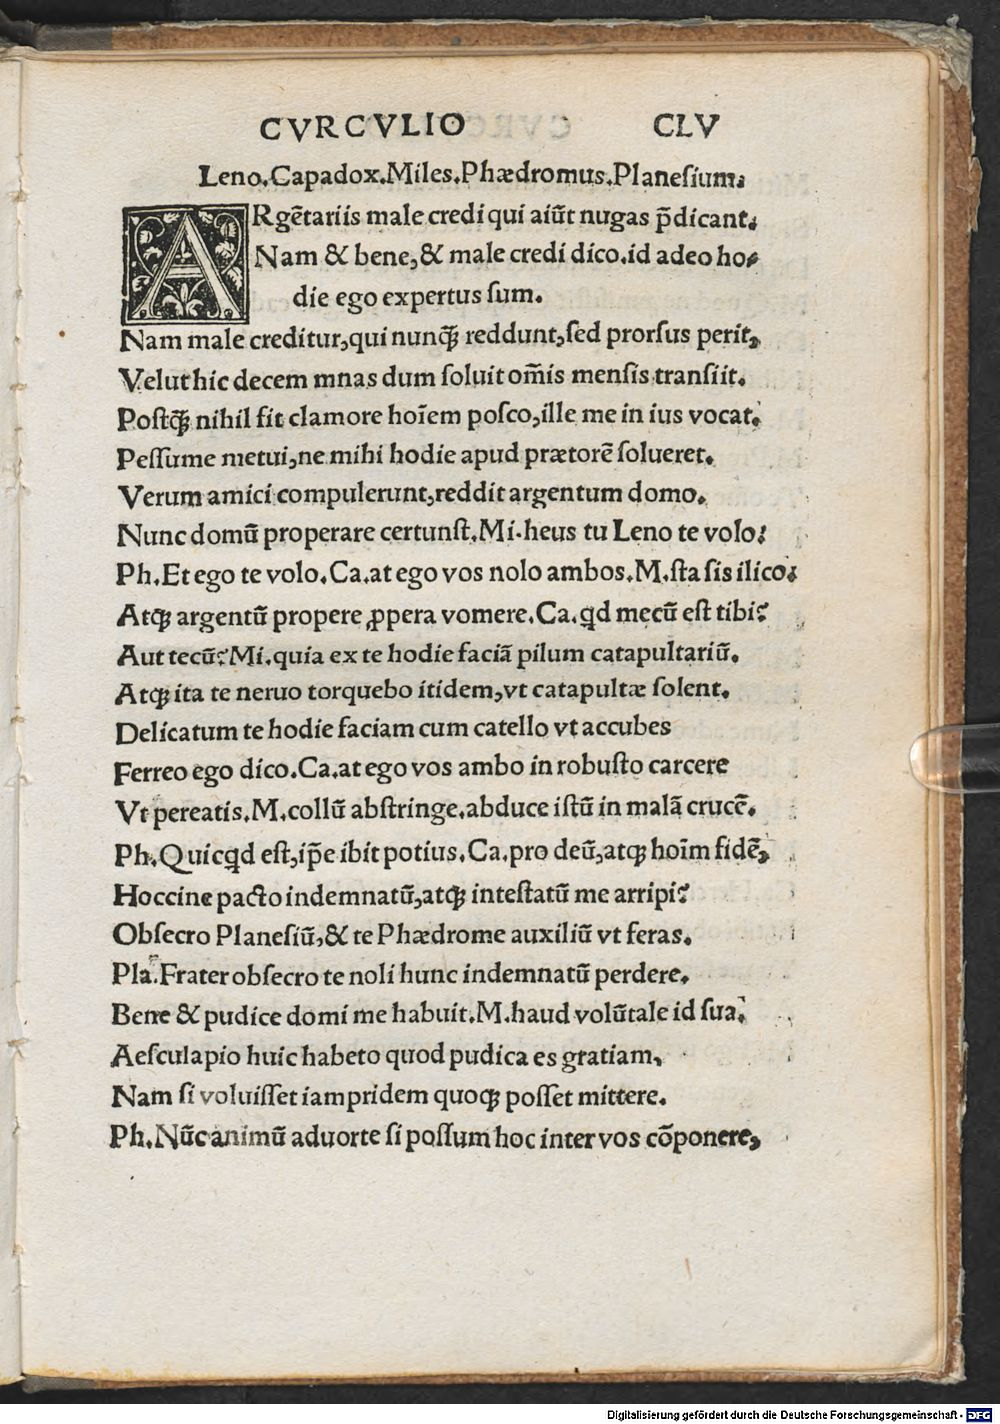 CVRCVLIO CLV
Leno.Capadox.Miles.Phædromus.Planeſium.
ARgẽtariis male credi qui aiũt nugas p̃dicant.
Nam & bene,& male credi dico.id adeo ho⸗
die ego expertus ſum.
Nam male creditur,qui nunꝗ̃ reddunt,ſed prorſus perit,
Velut hic decem mnas dum ſoluit om̃is mensis tranſiit.
Poſtꝗ̃ nihil fit clamore hoĩem poſco,ille me in ius vocat.
Peſſume metui,ne mihi hodie apud prætorẽ ſolueret.
Verum amici compulerunt,reddit argentum domo.
Nunc domũ properare certunſt.Mi.heus tu Leno te volo.
Ph.Et ego te volo.Ca.at ego vos nolo ambos.M.ſta ſis ilico.
Atqꝫ argentũ propere ꝓpera vomere.Ca.qd mecũ eſt tibi?
Aut tecũ?Mi.quia ex te hodie faciã pilum catapultariũ.
Atqꝫ ita te neruo torquebo itidem,vt catapultæ ſolent.
Delicatum te hodie faciam cum catello vt accubes
Ferreo ego dico.Ca.at ego vos ambo in robuſto carcere
Vt pereatis.M.collũ abſtringe.abduce iſtũ in malã crucẽ.
Ph.Quicqd eſt,ip̃e ibit potius.Ca.pro deũ,atqꝫ hoĩm fidẽ,
Hoccine pacto indemnatũ,atqꝫ inteſtatũ me arripi?
Obſecro Planeſiũ,& te Phædrome auxiliũ vt feras.
Pla.Frater obſecro te noli hunc indemnatũ perdere.
Bene & pudice domi me habuit.M.haud volũtale id ſua.
Aeſculapio huic habeto quod pudica es gratiam,
Nam ſi voluiſſet iampridem quoqꝫ poſſet mittere.
Ph.Nũc animũ aduorte ſi poſſum hoc inter vos cõponere,
Digitalisierung gefördert durch die Deutsche Forschungsgemeinschaft - DFG